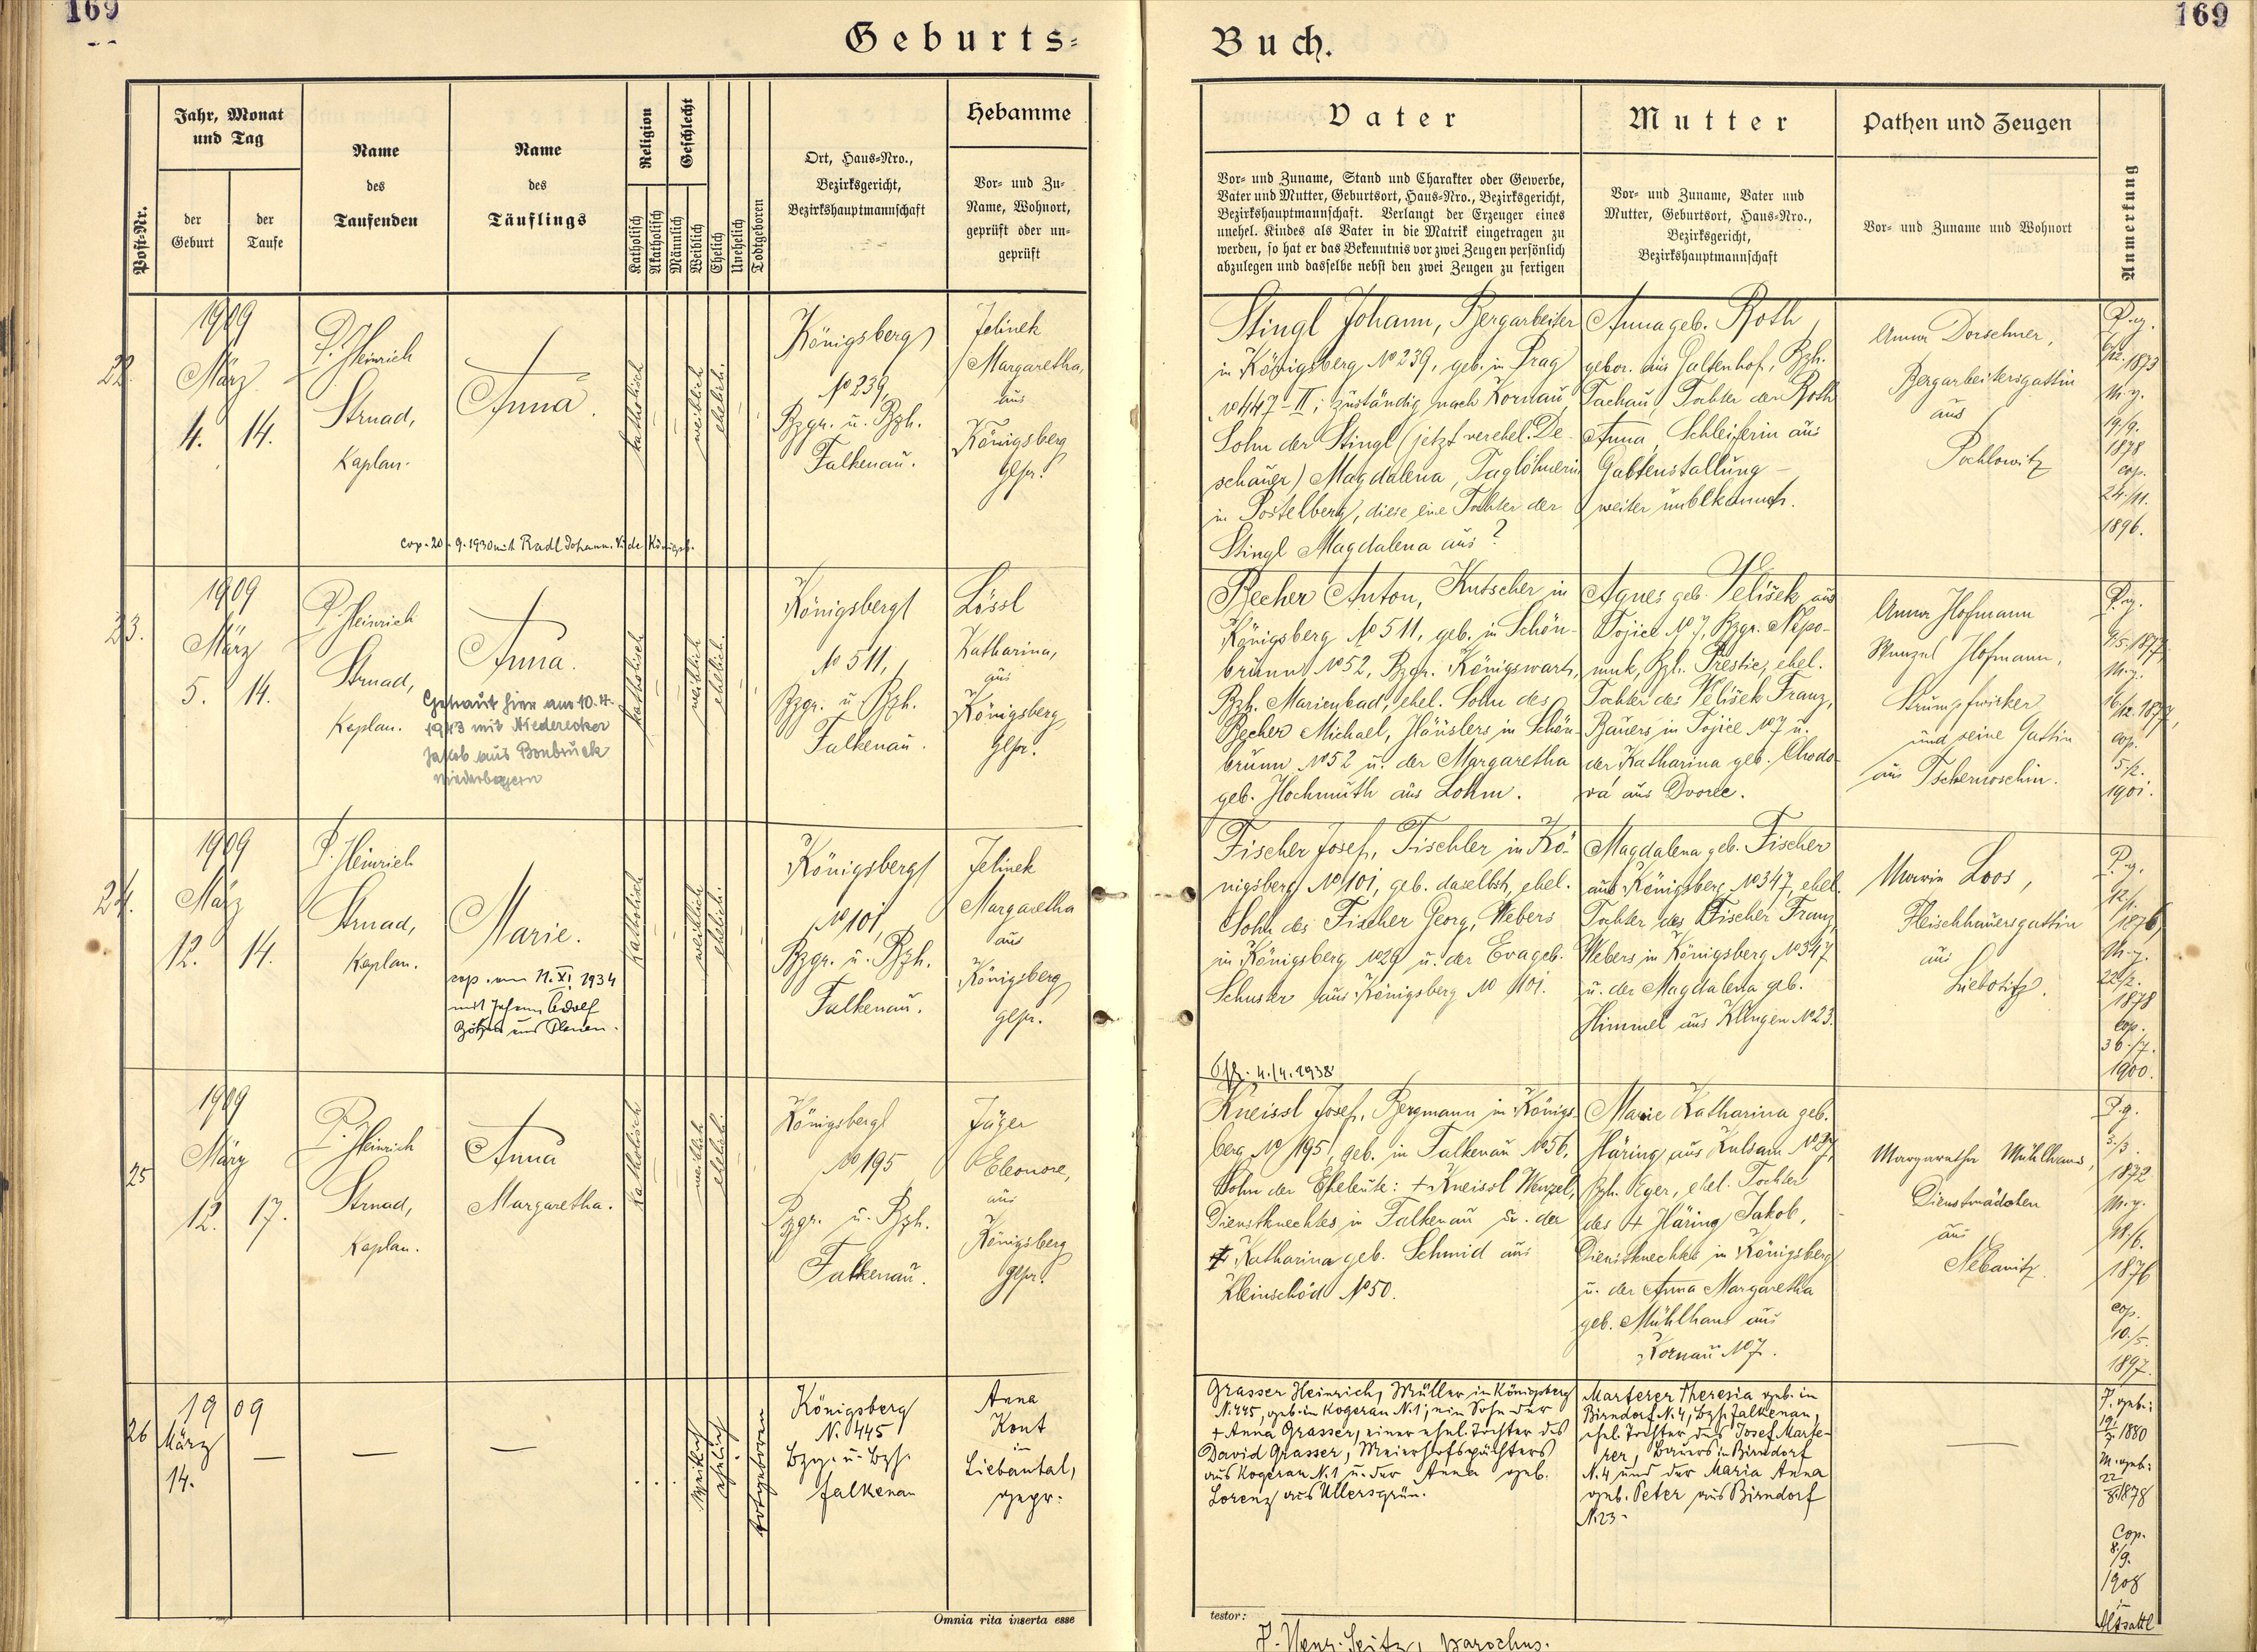 169
169
Geburts=
Buch.
Post-Nr.
Jahr, Monat
und Tag
der
Geburt
der
Taufe
Name
des
Taufenden
Name
des
Täuflings
Religion
Katholisch
Akatholisch
Geschlecht
Männlich
Weiblich
Ehelich
Unehelich
Todtgeboren
Ort, Haus=Nro.,
Bezirksgericht,
Bezirkshauptmannschaft
Hebamme
Vor- und Zu-
Name, Wohnort,
geprüft oder un-
geprüft
Vater
Vor- und Zuname, Stand und Charakter oder Gewerbe,
Vater und Mutter, Geburtsort, Haus=Nro., Bezirksgericht,
Bezirkshauptmannschaft. Verlangt der Erzeuger eines
unehel. Kindes als Vater in die Matrik eingetragen zu
werden, so hat er das Bekenntnis vor zwei Zeugen persönlich
abzulegen und dasselbe nebst den zwei Zeugen zu fertigen
Mutter
Vor- und Zuname, Vater und
Mutter, Geburtsort, Haus=Nro.,
Bezirksgericht,
Bezirkshauptmannschaft
Pathen und Zeugen
Vor- und Zuname und Wohnort
Anmerkung
22.
1909
März
4. 14.
P. Heinrich
Strnad,
Kaplan.
Anna.
katholisch
weiblich
ehelich.
Königsberg
№ 239,
Bzgr. u. Bzh.
Falkenau.
Jelinek
Margaretha,
aus
Königsberg
gepr.
cop. 20.9.1930 mit Radl Johann. Vide Königsb.
Stingl Johann, Bergarbeiter
in Königsberg № 239, geb. in Prag
№ 1447-II; zuständig nach Kornau,
Sohn der Stingl (jetzt verehel. De-
schauer) Magdalena, Taglöhnerin
in Postelberg, diese eine Tochter der
Stingl Magdalena aus ?
Anna geb. Roth,
gebor. aus Galtenhof, Bzh.
Tachau, Tochter der Roth
Anna, Schleiferin aus
Galtenstallung –
weiter unbekannt.
Anna Dorschner,
Bergarbeitersgattin
aus
Pochlowitz
P. g.
6/12. 1873
M. g.
19/9.
1878
cop.
24./11.
1896.
23.
1909
März
5. 14.
P. Heinrich
Strnad,
Kaplan.
Anna.
Getraut hier am 10.4.
1943 mit Niederecker
Jakob aus Bonbruck
Niederbayern
katholisch
weiblich
ehelich.
Königsberg
№ 511,
Bzgr. u. Bzh.
Falkenau.
Lössl
Katharina,
aus
Königsberg,
gepr.
Becher Anton, Kutscher in
Königsberg № 511, geb. in Schön-
brunn № 52, Bzgr. Königswart,
Bzh. Marienbad, ehel. Sohn des
Becher Michael, Häuslers in Schön-
brunn № 52 u. der Margaretha
geb. Hochmuth aus Lohm.
Agnes geb. Velišek aus
Tojice № 7, Bzgr. Nepo-
muk, Bzh. Prestic, ehel.
Tochter des Velišek Franz,
Bauers in Tojice № 7 u.
der Katharina geb. Chodo-
vá aus Dvorec.
Anna Hofmann
Wenzel Hofmann,
Strumpfwirker
und seine Gattin
aus Tschernoschin.
P. g.
9/5. 1877,
M. g.
16/12. 1877,
cop.
5./2.
1901.
24.
1909
März
12. 14.
P. Heinrich
Strnad,
Kaplan.
Marie.
cop. am 11. XI. 1934
mit Johann Adolf
katholisch
weiblich
ehelich.
Königsberg
№ 101,
Bzgr. u. Bzh.
Falkenau.
Jelinek
Margaretha
aus
Königsberg
gepr.
Fischer Josef, Tischler in Kö-
nigsberg № 101, geb. daselbst, ehel.
Sohn des Fischer Georg, Webers
in Königsberg № 29 u. der Eva geb.
Schuster aus Königsberg № 101.
4./4. 1938
Magdalena geb. Fischer
aus Königsberg № 347, ehel.
Tochter des Fischer Franz,
Webers in Königsberg № 347
u. der Magdalena geb.
Himmel aus Klingen № 23.
Marie Loos,
Fleischhauersgattin
aus
Liebotitz.
P. g.
12/1.
1876,
M. g.
22/2.
1878
cop.
30./7.
1900.
25
1909
März
12. 17.
P. Heinrich
Strnad,
Kaplan.
Anna
Margaretha.
katholisch
weiblich
ehelich.
Königsberg
№ 195
Bzgr. u. Bzh.
Falkenau.
Jäger
Eleonore,
aus
Königsberg
gepr.
Kneissl Josef, Bergmann in Königs-
berg № 195, geb. in Falkenau № 56,
Sohn der Eheleute: + Kneissl Wenzel,
Dienstknechtes in Falkenau u. der
+ Katharina geb. Schmid aus
Kleinschöd № 50.
Marie Katharina geb.
Häring aus Kulsam № 27,
Bzh. Eger, ehel. Tochter
des + Häring Jakob,
Dienstknechtes in Königsberg
u. der Anna Margaretha
geb. Mühlhans aus
Kornau № 7.
Margaretha Mühlhans,
Dienstmädchen
aus
Nebanitz.
P. g.
3./3.
1872
M. g.
18/6.
1876
cop.
10./5.
1897.
26
1909
März
14.
—
—
—
weiblich
ehelich
totgeboren
Königsberg
N. 445
Bzg. u. Bzh.
Falkenau
Anna
Kont
in
Liebautal,
gepr.
Grasser Heinrich, Müller in Königsberg
N. 445, geb. in Kogerau N. 1, ein Sohn der
+ Anna Grasser, einer ehel. Tochter des
David Grasser, Meierhofspächters
aus Kogerau N. 1 u. der Anna geb.
Lorenz aus Ullersgrün.
Marterer Theresia geb. in
Birndorf N. 4, Bzh. Falkenau,
ehel. Tochter des Josef Marte-
rer, Bauers in Birndorf
N. 4 und der Maria Anna
geb. Peter aus Birndorf
N. 23.
—
P. geb:
19/7 1880
M. geb:
22/8. 1878
Cop.
8./9.
1908
in
Altsattl
Omnia rita inserta esse
testor:
P. Henr. Seitz, parochus.